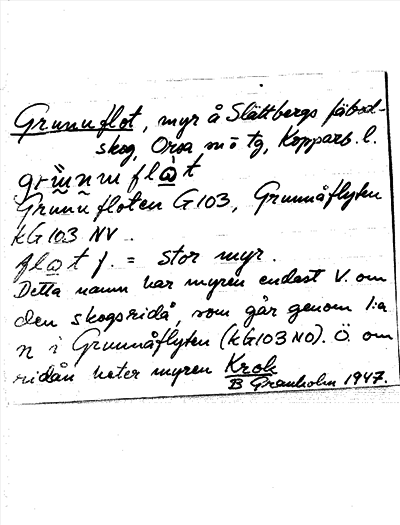 Grunuflot, myr å Slättbergs fäbod-
skog, Orsa sn o tg, Kopparb. l.
Grunufloten G103, Grunnåflyten
kG103 NV.
= stor myr.
Detta namn har myren endast V. om
den skogsridå, som går genom 1:a
n i Grunnåflyten (kG103 NO). Ö. om
ridån heter myren Krok
B Granholm 1947.